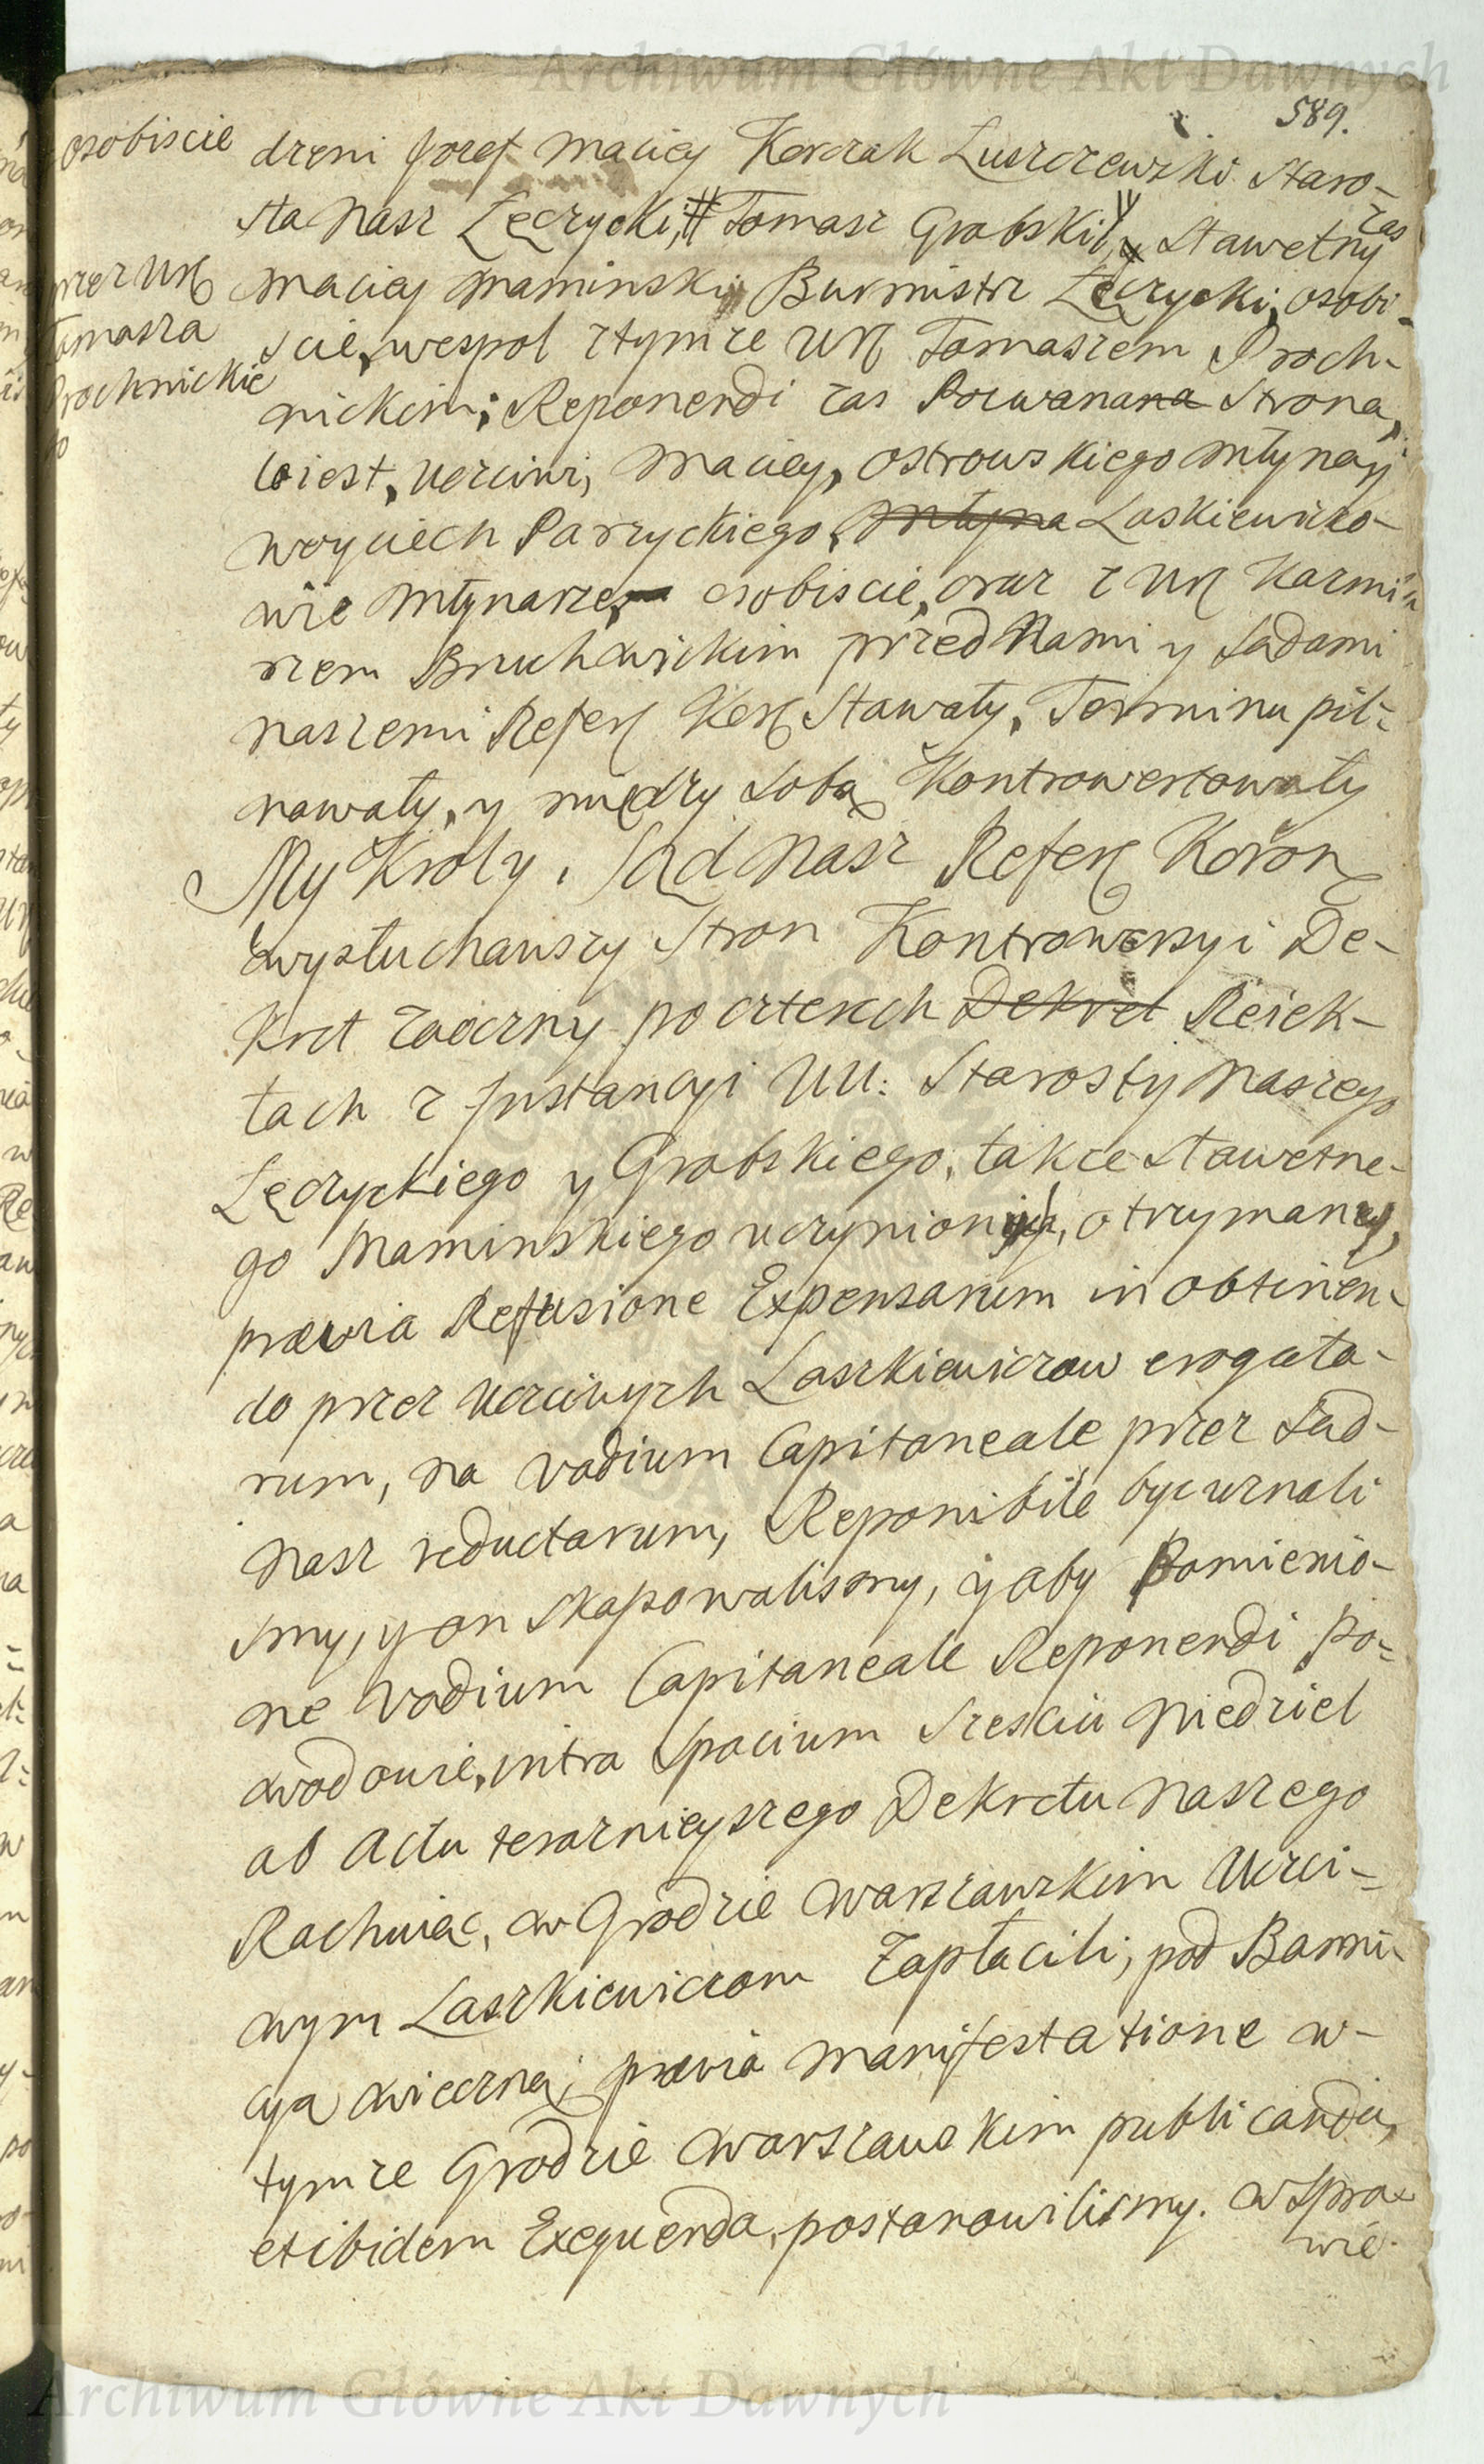 Archiwum Główne Akt Dawnych
589.
osobiscie
przez Ur
Tomasza
Prochnickie
go
dzeni Jozef Maciey Korczak Luszczewski Staro-
sta Nasz Łęczycki, # Tomasz Grabski, y Sławetny zas
Maciey Maminski Burmistrz Łęczycki, osobi-
scie, wespoł z tymze Ur Tomaszem Proch-
nickim; Reponendi zas Pozwana Strona,
to iest, Uczciwi, Maciey, Ostrowskiego Młynay
Woyciech Parzyckiego, Młyna Laskiewiczo-
wie Młynarze, osobiscie, oraz z Ur Kazmi-
rzem Bruchwickim przed Nami y Sądami
naszemi Refer Kor Stawały, Terminu pil-
nowały, y między sobą Kontrowertowały
My Kroly, Sąd Nasz Refer Koron
wysłuchawszy Stron Kontrowersyi De-
kret Zaoczny po czterech Dekret Reiek-
tach z Instancyi UU: Starosty Naszego
Łęczyckiego y Grabskiego, takze Sławetne-
go Maminskiego uczynionych, otrzymany,
prævia Refusione Expensarum in obtinen-
do przez Uczciwych Laszkiewiczow erogata-
rum, na Vadium Capitaneale przez Sąd
Nasz reductarum, Reponibile byc uznali
smy, y on skassowalismy, y aby Pomienio-
ne Vadium Capitaneale Reponendi Po-
wodowie, intra Spacium Szesciu Niedziel
ab Actu teraznieyszego Dekretu Naszego
Rachuiąc, w Grodzie Warszawskim Uczci-
wym Laszkiewiczom Zapłacili, pod Banni-
cyą wieczną, prævia Manifestatione w
tymze Grodzie Warszawskim publicanda,
et ibidem Exequenda, postanowilismy. W Spra-
wie
Archiwum Główne Akt Dawnych